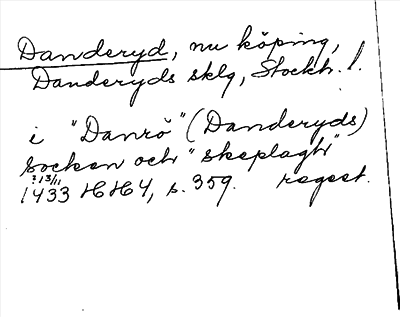 Danderyd, nu köping,
Danderyds sklg, Stockh. l.
i "Danrö" (Danderyds)
socken och "skeplaghr"
? 13/11
1433 HH 4, s. 359. regest.